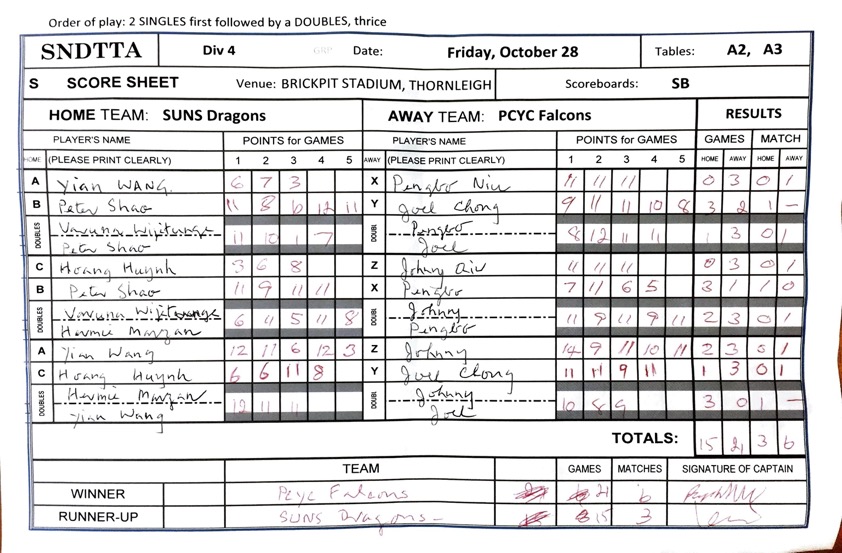 Order of play: 2 SINGLES first followed by a DOUBLES, thrice
SNDTTA Div 4 GRP Date: Friday, October 28 Tables: A2, A3
S SCORE SHEET Venue: BRICKPIT STADIUM, THORNLEIGH Scoreboards: SB
HOME TEAM: SUNS Dragons AWAY TEAM: PCYC Falcons RESULTS
PLAYER'S NAME POINTS for GAMES PLAYER'S NAME POINTS for GAMES GAMES MATCH
HOME (PLEASE PRINT CLEARLY) 1 2 3 4 5 AWAY (PLEASE PRINT CLEARLY) 1 2 3 4 5 HOME AWAY HOME AWAY
A Yian WANG 6 7 3 X Pengbo Niu 11 11 11 0 3 0 1
B Peter Shao 11 8 6 12 11 Y Joel Chong 9 11 11 10 8 3 2 1 -
DOUBLES Varuna Wijitunge 11 10 1 7 DOUBL Pengbo 8 12 11 11 1 3 0 1
Peter Shao Joel
C Hoang Huynh 3 6 8 Z Johnny 11 11 11 0 3 0 1
B Peter Shao 11 9 11 11 X Pengbo 7 11 6 5 3 1 1 0
DOUBLES Varuna Wijitunge 6 11 5 11 8 DOUBL Johnny 11 9 11 9 11 2 3 0 1
Hermie Marzan Pengbo
A Yian Wang 12 11 6 12 3 Z Johnny 14 9 11 10 11 2 3 0 1
C Hoang Huynh 6 6 11 8 Y Joel Chong 11 11 9 11 1 3 0 1
DOUBLES Hermie Marzan 12 11 11 DOUBL Johnny 10 8 9 3 0 1 -
Yian Wang Joel
TOTALS: 15 21 3 6
TEAM GAMES MATCHES SIGNATURE OF CAPTAIN
WINNER PCYC Falcons 21 6
RUNNER-UP SUNS Dragons - 15 3